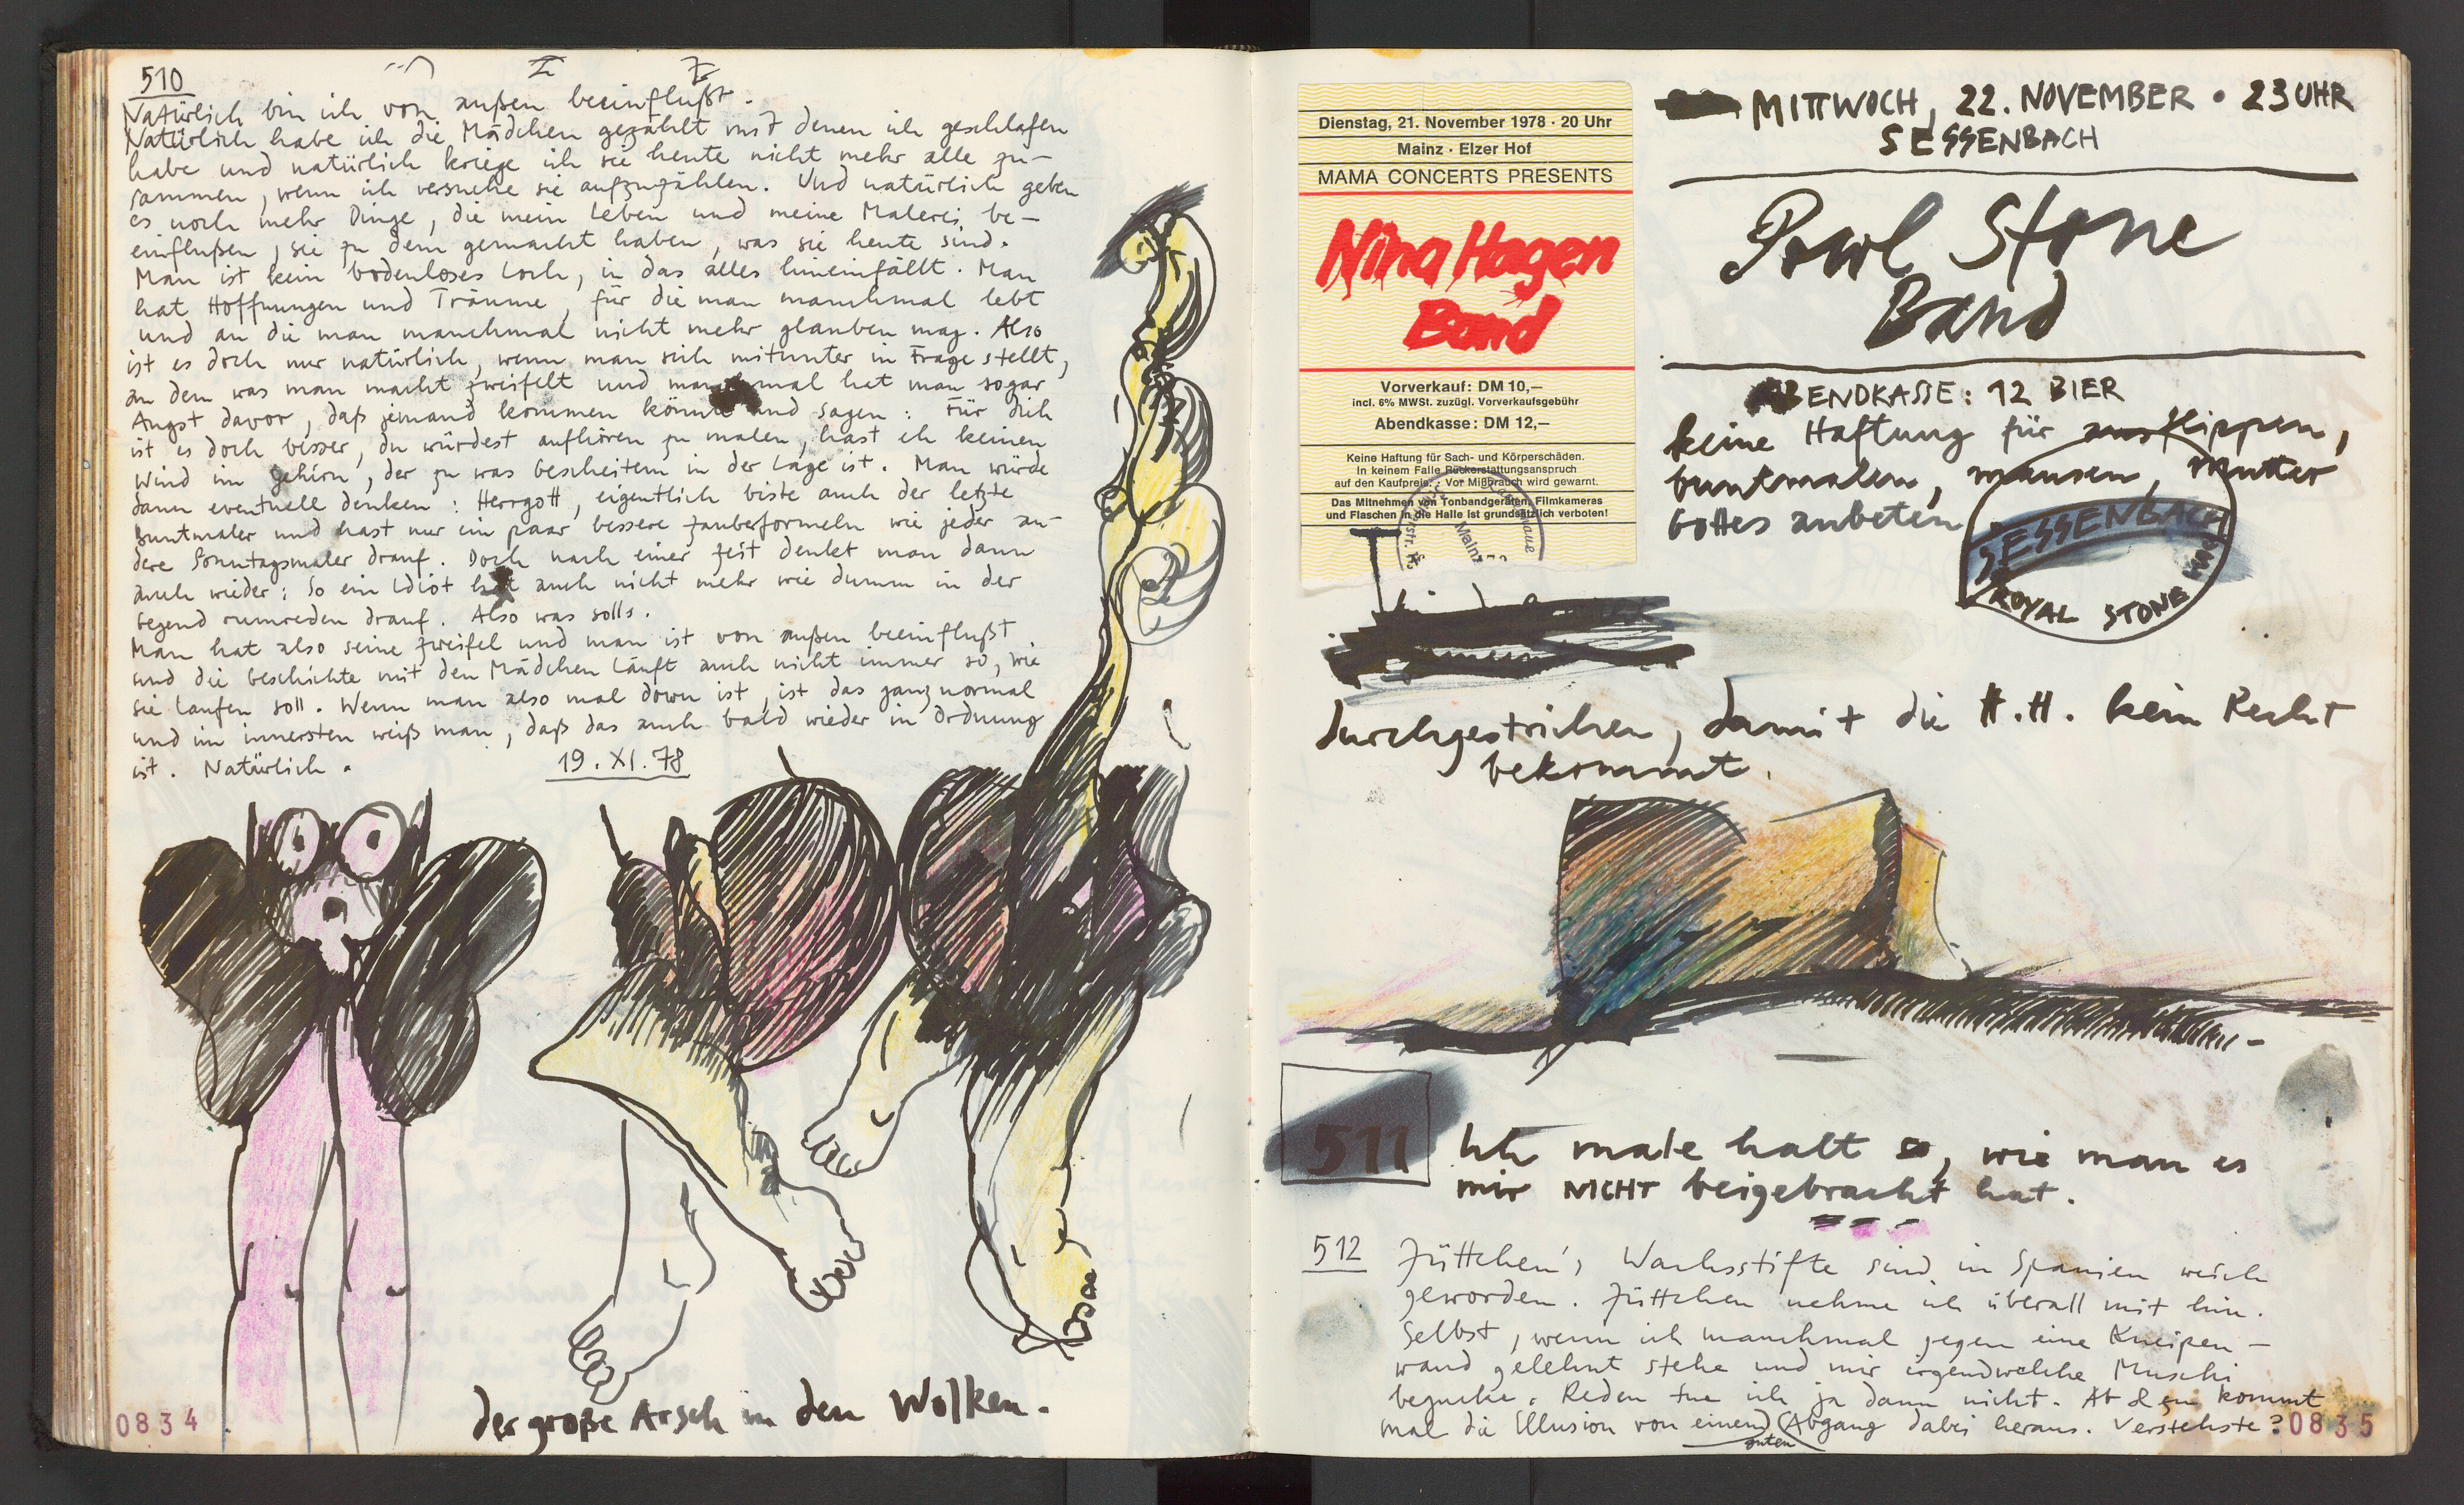 510
Natürlich bin ich von außen beeinflußt.
Natürlich habe ich die Mädchen gezählt mit denen ich geschlafen
habe und natürlich kriege ich sie heute nicht mehr alle zu-
sammen, wenn ich versuche sie aufzuzählen. Und natürlich geben
es noch mehr Dinge, die mein Leben und meine Malerei be-
einflußen, sie zu dem gemacht haben, was sie heute sind.
Man ist kein bodenloses Loch, in das alles hineinfällt. Man
hat Hoffnungen und Träume, für die man manchmal lebt
und an die man manchmal nicht mehr glauben mag. Also
ist es doch nur natürlich, wenn man sich mitunter in Frage stellt,
an dem was man macht zweifelt und manchmal hat man sogar
Angst davor, daß jemand kommen könnte und sagen: Für dich
ist es doch besser, du würdest aufhören zu malen, hast eh keinen
Wind im Gehirn, der zu was bescheitem in der Lage ist. Man würde
dann eventuell denken: Herrgott, eigentlich biste auch der letzte
Buntmaler und hast nur ein paar bessere Zauberformeln wie jeder an-
dere Sonntagsmaler drauf. Doch nach einer Zeit denkt man dann
auch wieder: So ein Idiot hat auch nicht mehr wie dumm in der
Gegend rumreden drauf. Also was solls.
Man hat also seine Zweifel und man ist von außen beeinflußt
und die Geschichte mit den Mädchen läuft auch nicht immer so, wie
sie laufen soll. Wenn man also mal down ist, ist das ganz normal
und im innersten weiß man, daß das auch bald wieder in Ordnung
ist. Natürlich.
19. XI. 78
der große Arsch in den Wolken.
0834
Dienstag, 21. November 1978 · 20 Uhr
Mainz · Elzer Hof
MAMA CONCERTS PRESENTS
Nina Hagen
Band
Vorverkauf: DM 10,—
incl. 6% MWSt. zuzügl. Vorverkaufsgebühr
Abendkasse: DM 12,—
Keine Haftung für Sach- und Körperschäden.
In keinem Falle Rückerstattungsanspruch
auf den Kaufpreis. Vor Mißbrauch wird gewarnt.
Das Mitnehmen von Tonbandgeräten, Filmkameras
und Flaschen in die Halle ist grundsätzlich verboten!
Mainz
MITTWOCH, 22. NOVEMBER · 23 UHR
SESSENBACH
Powl Stone
Band
ABENDKASSE: 12 BIER
keine Haftung für ausflippen,
buntmalen, mausen, Mutter
Gottes anbeten
SESSENBACH
ROYAL STONE
durchgestrichen, damit die H.H. kein Recht
bekommt.
511
Ich male halt so, wie man es
mir NICHT beigebracht hat.
512
Jüttchen's Wachsstifte sind in Spanien weich
geworden. Jüttchen nehme ich überall mit hin.
Selbst, wenn ich manchmal gegen eine Kneipen-
wand gelehnt stehe und mir irgendwelche Muschi
begucke. Reden tue ich ja dann nicht. Ab & zu kommt
mal die Illusion von einem guten Abgang dabei heraus. Verstehste?
0835